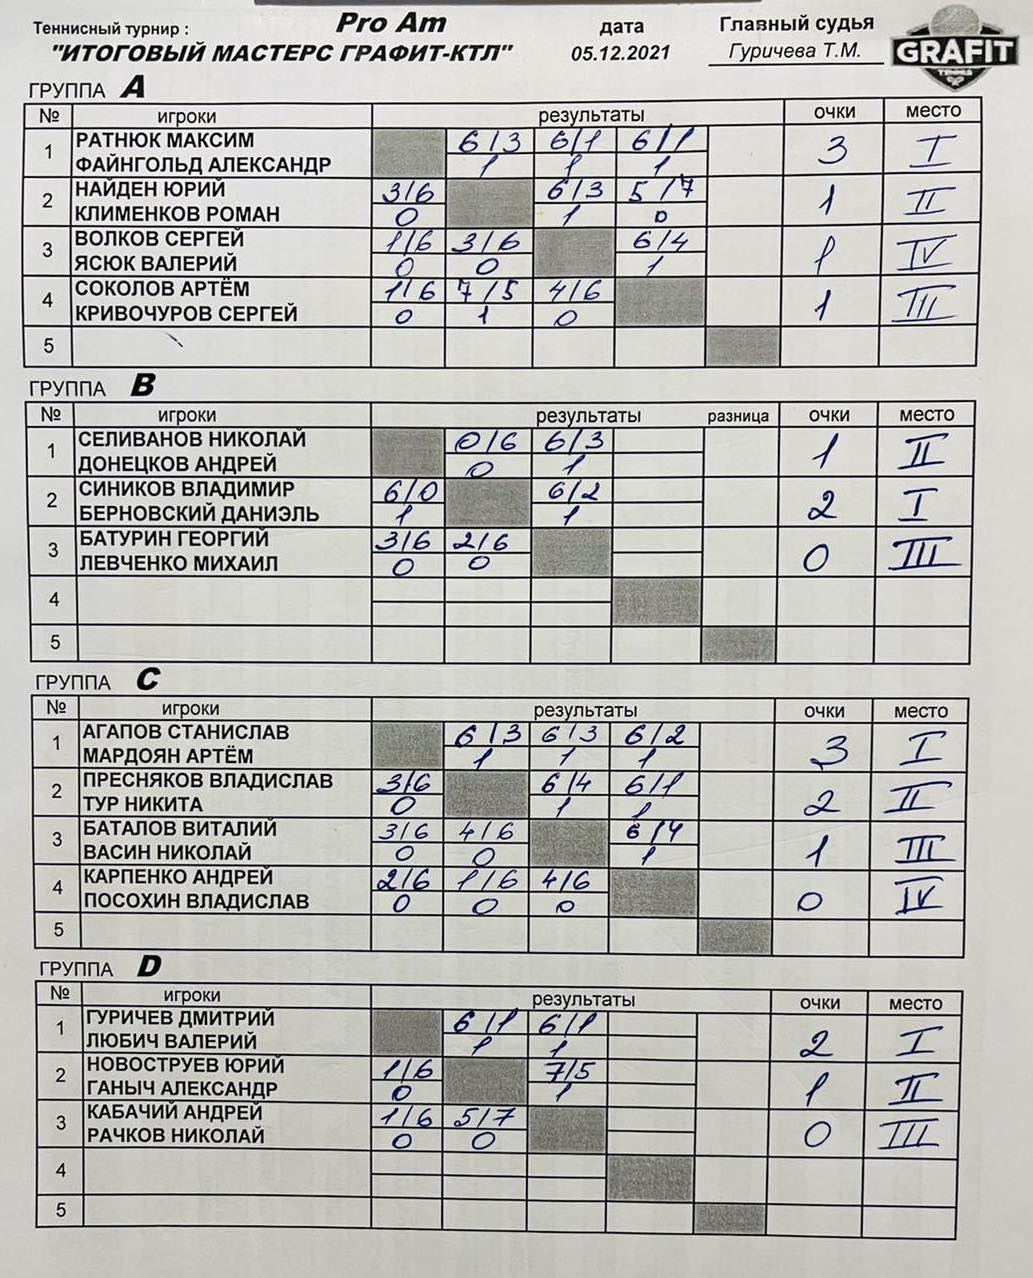 Теннисный турнир : Pro Am дата Главный судья
"ИТОГОВЫЙ МАСТЕРС ГРАФИТ-КТЛ" 05.12.2021 Гуричева Т.М.
GRAFIT
TENNIS
ГРУППА A
№ игроки результаты очки место
1 РАТНЮК МАКСИМ 6/3 6/1 6/1 3 I
ФАЙНГОЛЬД АЛЕКСАНДР 1 1 1
2 НАЙДЕН ЮРИЙ 3/6 6/3 5/7 1 II
КЛИМЕНКОВ РОМАН 0 1 0
3 ВОЛКОВ СЕРГЕЙ 1/6 3/6 6/4 1 IV
ЯСЮК ВАЛЕРИЙ 0 0 1
4 СОКОЛОВ АРТЁМ 1/6 7/5 4/6 1 III
КРИВОЧУРОВ СЕРГЕЙ 0 1 0
5
ГРУППА B
№ игроки результаты разница очки место
1 СЕЛИВАНОВ НИКОЛАЙ 0/6 6/3 1 II
ДОНЕЦКОВ АНДРЕЙ 0 1
2 СИНИКОВ ВЛАДИМИР 6/0 6/2 2 I
БЕРНОВСКИЙ ДАНИЭЛЬ 1 1
3 БАТУРИН ГЕОРГИЙ 3/6 2/6 0 III
ЛЕВЧЕНКО МИХАИЛ 0 0
4
5
ГРУППА C
№ игроки результаты очки место
1 АГАПОВ СТАНИСЛАВ 6/3 6/3 6/2 3 I
МАРДОЯН АРТЁМ 1 1 1
2 ПРЕСНЯКОВ ВЛАДИСЛАВ 3/6 6/4 6/1 2 II
ТУР НИКИТА 0 1 1
3 БАТАЛОВ ВИТАЛИЙ 3/6 4/6 6/4 1 III
ВАСИН НИКОЛАЙ 0 0 1
4 КАРПЕНКО АНДРЕЙ 2/6 1/6 4/6 0 IV
ПОСОХИН ВЛАДИСЛАВ 0 0 0
5
ГРУППА D
№ игроки результаты очки место
1 ГУРИЧЕВ ДМИТРИЙ 6/1 6/1 2 I
ЛЮБИЧ ВАЛЕРИЙ 1 1
2 НОВОСТРУЕВ ЮРИЙ 1/6 7/5 1 II
ГАНЫЧ АЛЕКСАНДР 0 1
3 КАБАЧИЙ АНДРЕЙ 1/6 5/7 0 III
РАЧКОВ НИКОЛАЙ 0 0
4
5